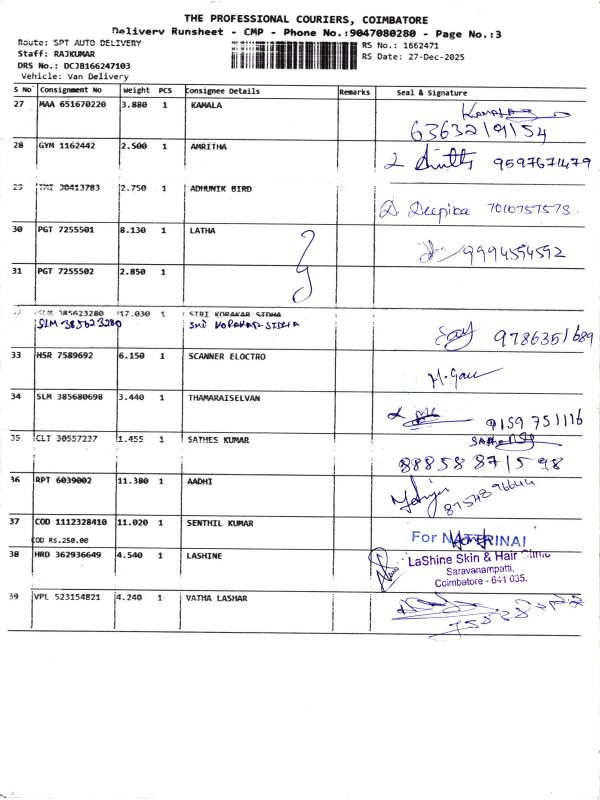 THE PROFESSIONAL COURIERS, COIMBATORE
Delivery Runsheet - CMP - Phone No.:9047080280 - Page No.:3
Route: SPT AUTO DELIVERY
RS No.: 1662471
Staff: RAJKUMAR
RS Date: 27-Dec-2025
DRS No.: DCJB166247103
Vehicle: Van Delivery
S No Consignment No Weight PCS Consignee Details Remarks Seal & Signature
27 MAA 651670220 3.880 1 KAMALA Kamala
6363219154
28 GYM 1162442 2.500 1 AMRITHA 9597671479
29 TMI 30413783 2.750 1 ADHUNIK BIRD
D. Deepika 7010757573.
30 PGT 7255501 8.130 1 LATHA
9994554592
31 PGT 7255502 2.850 1
32 SLM 385623280 17.030 1 SIRI KORAKAR SIDHA
SLM 385623280 SIRI KORAKAR SIDHA
9786351689
33 HSR 7589692 6.150 1 SCANNER ELOCTRO
34 SLM 385680698 3.440 1 THAMARAISELVAN
9159751116
35 CLT 30557237 1.455 1 SATHES KUMAR
88858871598
36 RPT 6039002 11.380 1 AADHI
37 COD 1112328410 11.020 1 SENTHIL KUMAR
COD Rs.250.00
For
38 HRD 362936649 4.540 1 LASHINE LaShine Skin & Hair Clinic
Saravanampatti,
Coimbatore - 641 035.
39 VPL 523154821 4.240 1 VATHA LASHAR